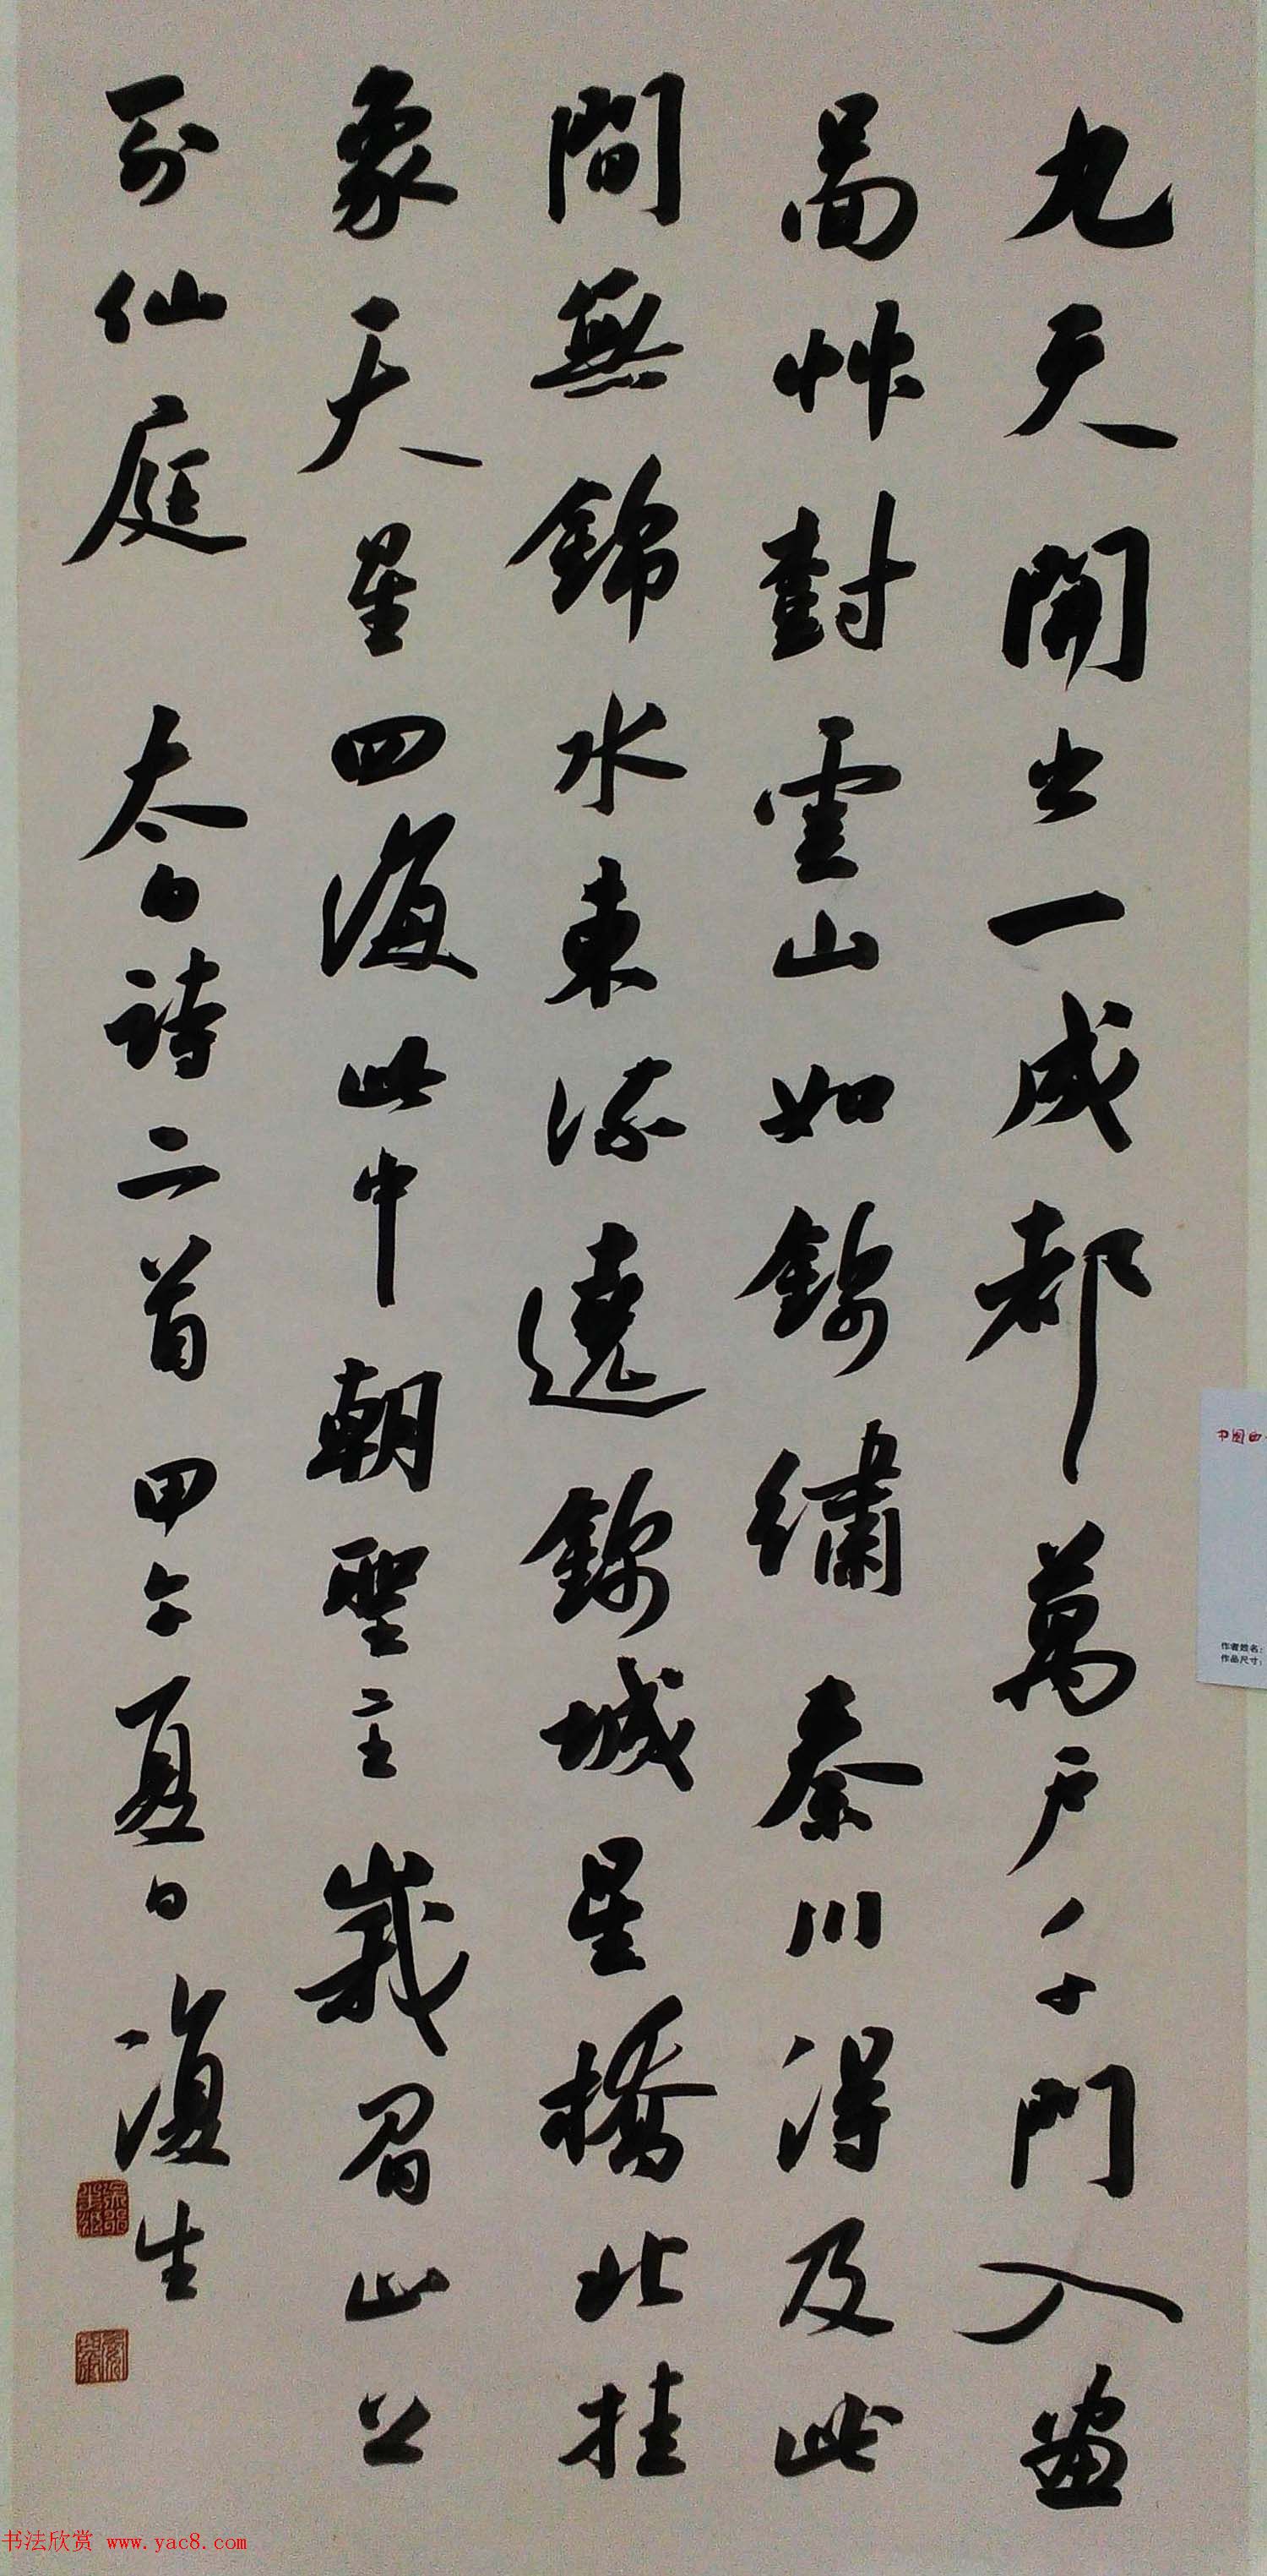 九天開出一成都萬户千門入畫
圖草對雲山如錦繡秦川得及此
間無錦水東流遶錦城星橋北挂
象天星四海此中朝聖主峩眉山上
列仙庭 太白詩二首 甲午夏日 復生
中国
作者姓名:
作品尺寸:
书法欣赏 www.yac8.com